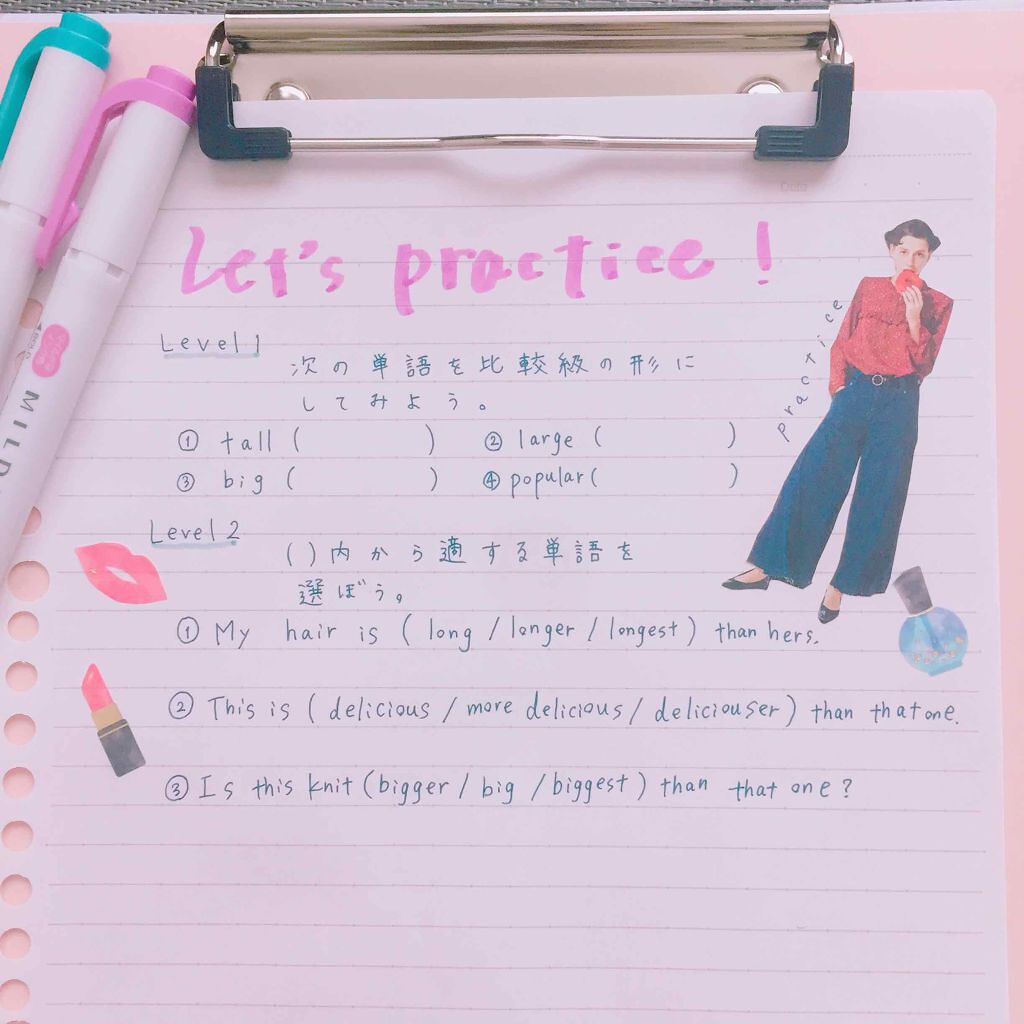 Let's practice!
Level 1
次の単語を比較級の形に
してみよう。
① tall (　　　) ② large (　　　)
③ big (　　　) ④ popular(　　　)
practice
Level 2
( )内から適する単語を
選ぼう。
① My hair is ( long / longer / longest ) than hers.
② This is ( delicious / more delicious / deliciouser ) than that one.
③ Is this knit (bigger / big / biggest ) than that one ?
MILD